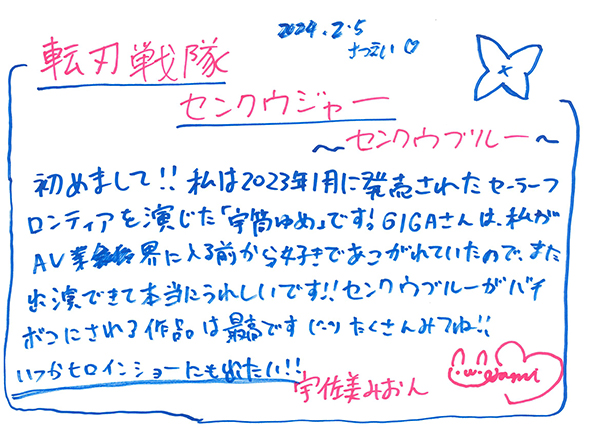 2024.2.5
さつえい♡
転刃戦隊
センクウジャー
〜センクウブルー〜
初めまして!! 私は2023年1月に発売されたセーラーフ
ロンティアを演じた「宇筒ゆめ」です! GIGAさんは、私が
AV業界に入る前から好きであこがれていたので、また
出演できて本当にうれしいです!! センクウブルーがバチ
ボコにされる作品は最高です たくさんみてね!!
いつかヒロインショーにも出たい!!
宇佐美みおん